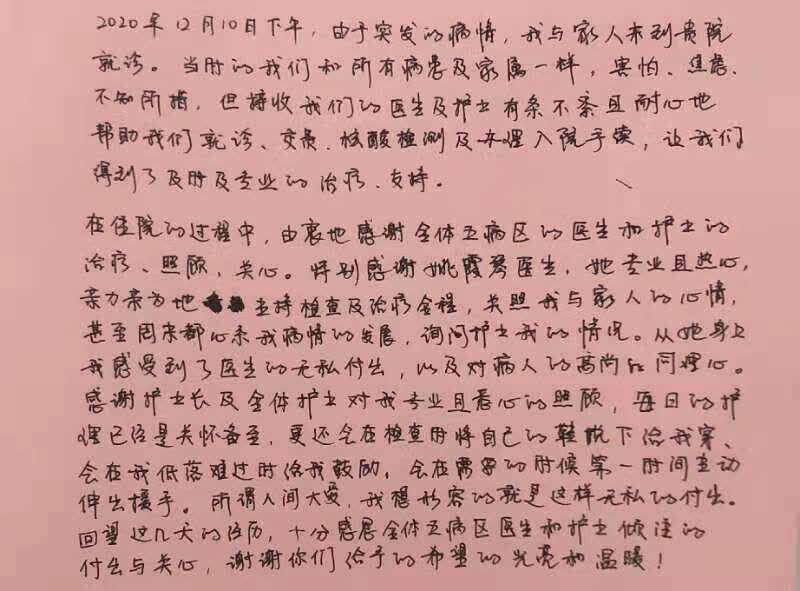 2020年12月10日下午，由于突发的病情，我与家人来到贵院
就诊。当时的我们和所有病患及家属一样，害怕、焦虑、
不知所措，但接收我们的医生及护士有条不紊且耐心地
帮助我们就诊、交费、核酸检测及办理入院手续，让我们
得到了及时及专业的治疗、支持。
在住院的过程中，由衷地感谢全体五病区的医生和护士的
治疗、照顾、关心。特别感谢姚霞琴医生，她专业且热心，
亲力亲为地主持检查及治疗全程，关照我与家人的心情，
甚至周末都心系我病情的发展，询问护士我的情况。从她身上
我感受到了医生的无私付出，以及对病人的高尚的同理心。
感谢护士长及全体护士对我专业且悉心的照顾，每日的护
理已经是关怀备至，更还会在检查时将自己的鞋脱下给我穿、
会在我低落难过时给我鼓励、会在需要的时候第一时间主动
伸出援手。所谓人间大爱，我想形容的就是这样无私的付出。
回望这几天的经历，十分感恩全体五病区医生和护士倾注的
付出与关心，谢谢你们给予的希望的光亮和温暖！